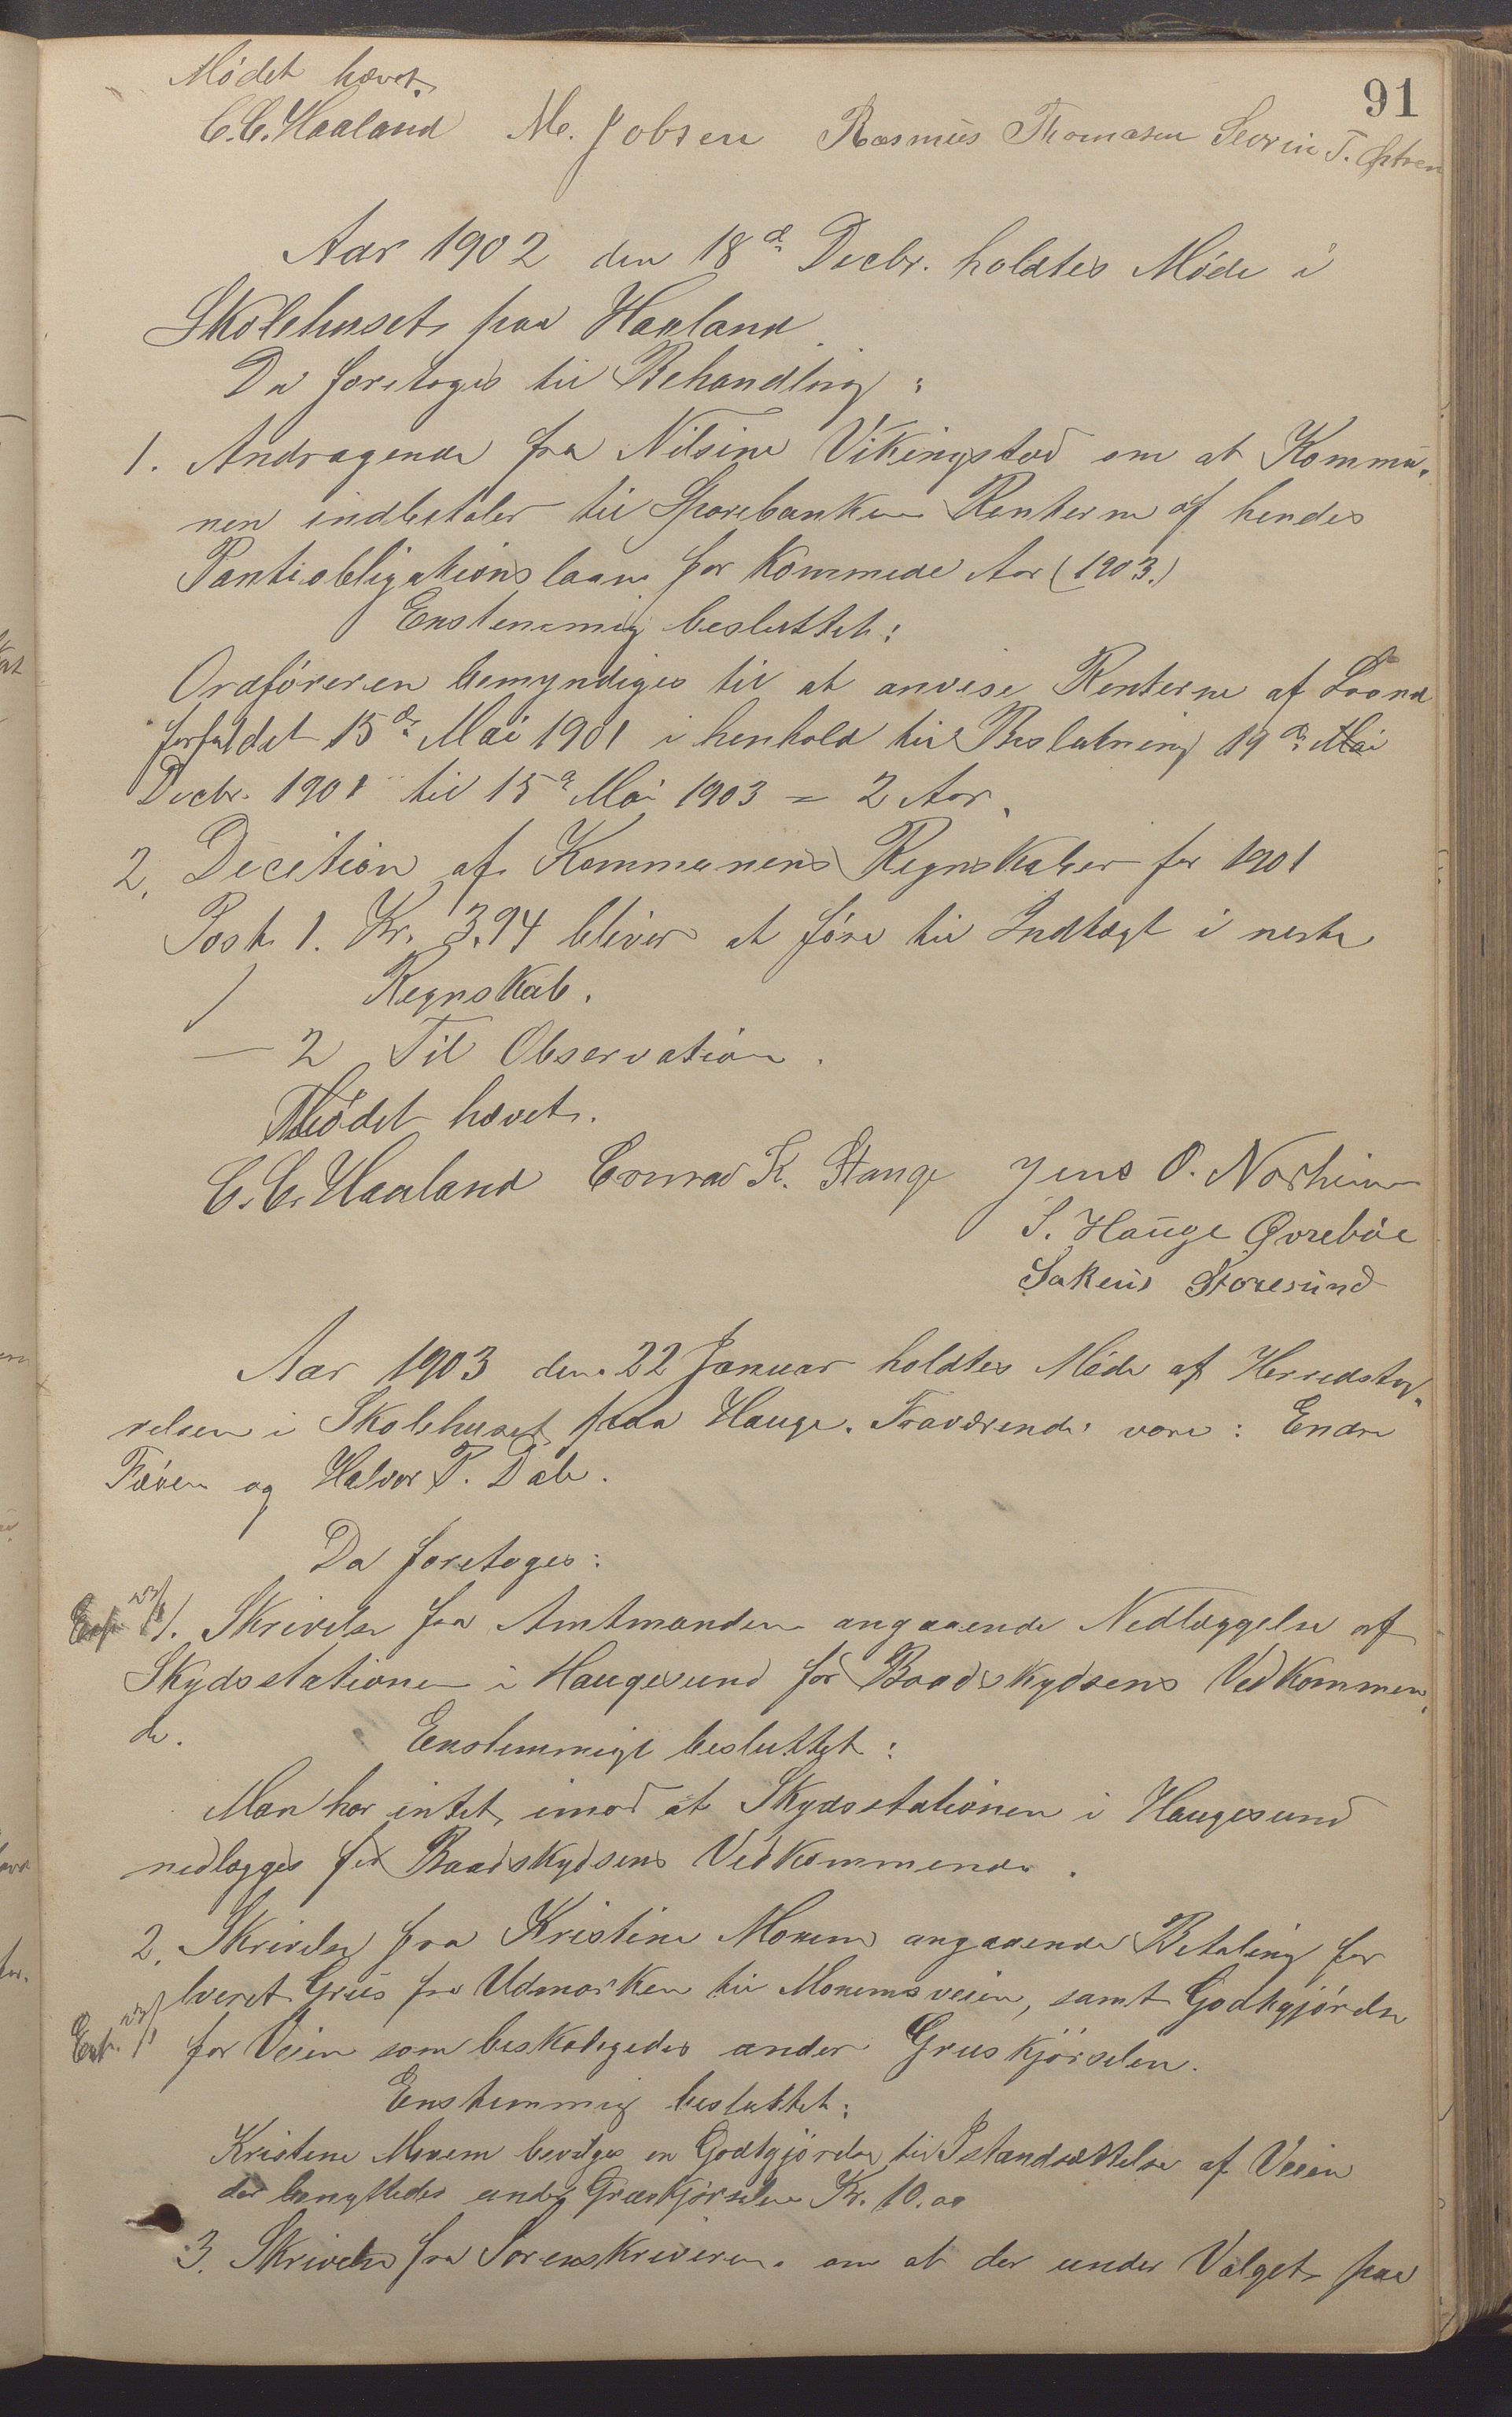 91
Mødet hævet.
C. C. Haaland M. Jobsen Rasmus Thomasen Sevrin T.
Aar 1902 den 18de Decbr. holdtes Møde i
Skolehuset paa Haaland.
Da foretoges til Behandling:
1. Andragende fra Nilsine Vikingstad om at Kommu-
nen indbetaler til Sparebanken Renterne af hendes
Pantiobligationslaan for Kommede Aar (1903.)
Enstemmig besluttet:
Ordføreren bemyndiges til at anvise Renterne af Laanet
forfaldet 15de Mai 1901 i henhold til Beslutning 19de Mai
Decbr. 1901 til 15de Mai 1903 = 2 Aar.
2. Decition af Kommunens Regnskaber for 1901
Post 1. Kr. 3.94 bliver at føre til Indtægt i neste
Regnskab.
— 2 Til Observation.
Mødet hævet.
C. C. Haaland Conrad K. Stange Jens O. Norheim
S. Hauge Øvrebøe
Sakeus Storesund
Aar 1903 den 22 Januar holdtes Møde af Herredsty-
relsen i Skolehuset paa Hauge. Fraværende vare: Endre
Fæøen og Halvor P. Dale.
Da foretoges:
1. Skrivelse fra Amtmanden angaaende Nedlæggelse af
Skydsstationen i Haugesund for Baadskydsens Vedkommen-
de. Enstemmigt besluttet:
Man har intet imod at Skydsstationen i Haugesund
nedlægges for Baadskydsens Vedkommende.
2. Skrivelse fra Kristine Monem angaaende Betaling for
lveret Grus fra Udmarken til Monemsveien, samt Godtgjørelse
Exp. 23/1 for Veien som beskadigedes under Gruskjørselen.
Enstemmig besluttet:
Kristene Monem bevilges en Godtgjørelse til Istandsættelse af Veien
der benyttedes under Gruskjørselen Kr. 10.00
3. Skrivelse fra Sorenskriveren om at der under Valget paa